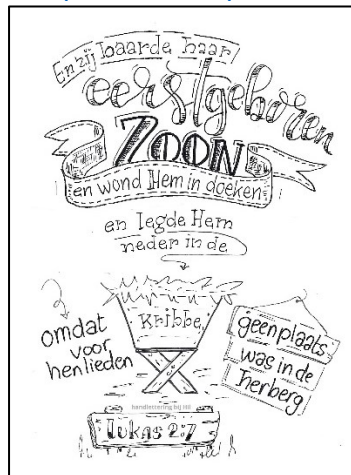 En zij baarde haar
eerstgeboren
ZOON
en wond Hem in doeken
en legde Hem
neder in de
kribbe,
omdat
voor
henlieden
geen plaats
was in de
herberg
handlettering bij Hil
Lukas 2:7